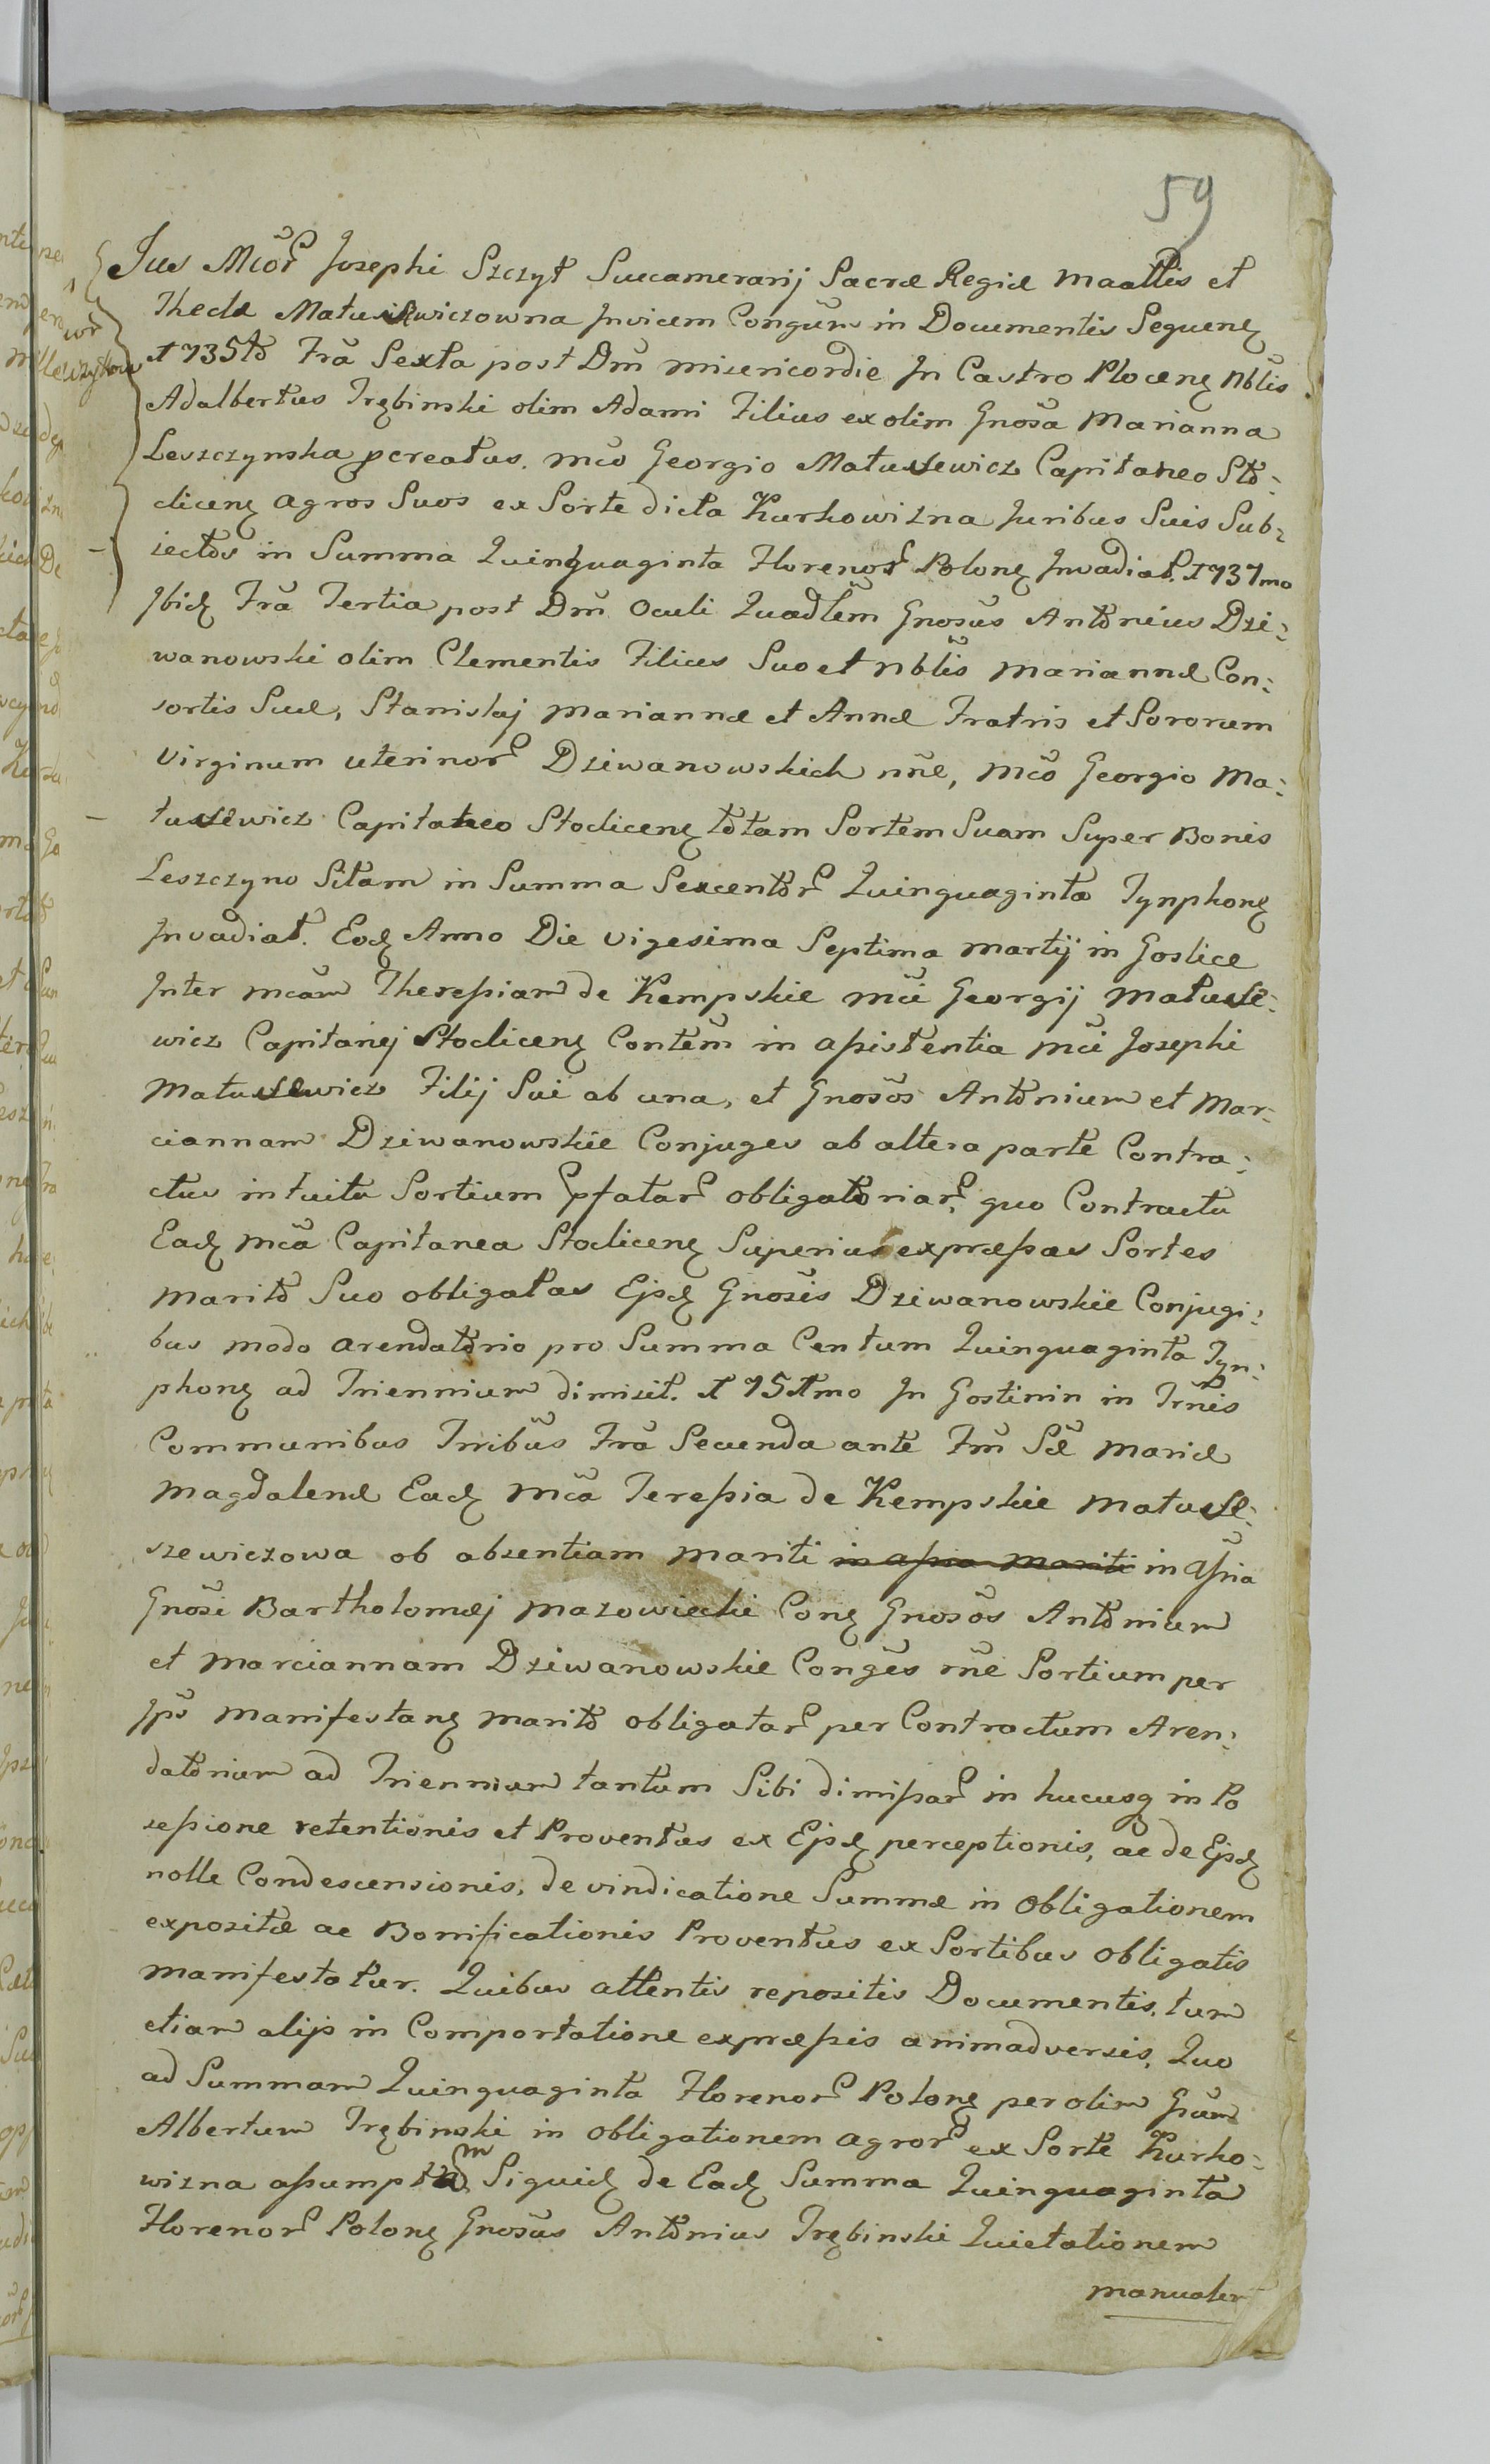 59
Jus Mcor Josephi Szczyt Succamerarij Sacræ Regiæ Maattis et
Theclæ Matusiewiczowna Jnvicem Congũm in Documentis Sequenȝ
1735to Frã Sexta post Dm̃ misericordie Jn Castro Plocenȝ Nblis
Adalbertus Trębinski olim Adami Filius ex olim Gnosã Marianna
Leszczynska pcreatus. Mco Georgio Matusewicz Capitaneo Sto:
clicenȝ agros Suos ex Sorte dicta Kurkowizna Juribus Suis Sub:
iectos in Summa Quinquaginta Florenor Polonȝ Jnvadiat. 1737mo
Jbidȝ Frã Tertia post Dm̃ Oculi Quadlem̃ Gnosũs Antonius Dzi:
wanowski olim Clementis Filius Suo et Nblis Mariannæ Con:
sortis Suæ, Stanislaj Mariannæ et Annæ Fratris et Sororum
Virginum uterinor Dziwanowskich nñe, Mco Georgio Ma:
tusewicz Capitaneo Stoclicenȝ totam Sortem Suam Super Bonis
Leszczyno Sitam in Summa Sexcentor Quinquaginta Tynphonȝ
Jnvadiat. Eodȝ Anno Die vigesima Septima Martij in Goslice
Jnter mcãm Theressiam de Kempskie mci Georgij Matuse:
wicz Capitanej Stoclicenȝ Contem̃ in assistentia mci Josephi
Matusewicz Filij Sui ab una, et Gnosõs Antonium et Mar:
ciannam Dziwanowskie Conjuges ab altera parte Contra:
ctus intuitu Sortium pfatar obligatoriar, quo Contractu
Eadȝ mcã Capitanea Stoclicenȝ Superius expræssas Sortes
Marito Suo obligatas Ejsdȝ Gnosis Dziwanowskie Conjugi:
bus modo arendatorio pro Summa Centum Quinquaginta Tyn:
phonȝ ad Triennium dimisit. 1751mo Jn Gostinin in Trñis
Communibus Trribus Frã Secunda ante Fm̃ Sæ Mariæ
Magdalenæ Eadȝ Mcã Teressia de Kempskie Matuse:
szewiczowa ob absentiam Mariti in assia Mariti in assia
Gnosi Bartholomæj Mazowiecki Conȝ Gnosõs Antonium
et Marciannam Dziwanowskie Congẽs rñe Sortium per
Jps Manifestanȝ Marito obligatar per Contractum Aren:
datorium ad Triennium tantum Sibi dimissar in hucusq in Po
sessione retentionis et Proventus ex Ejsdȝ perceptionis, ac de Ejsdȝ
nolle Condescensionis, de vindicatione Summæ in Obligationem
expositæ ac Bonificationis Proventus ex Sortibus obligatis
manifestatur. Quibus attentis repositis Documentis, tum
etiam alijs in Comportatione expræssis animadversis, Quo
ad Summam Quinquaginta Florenor Polonȝ per olim Gsum
Albertum Trębinski in obligationem agror ex Sorte Kurko:
wizna assumptam, Siquidȝ de Eadȝ Summa Quinquaginta
Florenor Polonȝ Gnosũs Antonius Trębinski Quietationem
manualem